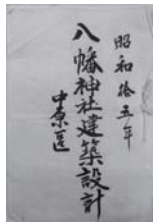 昭和拾五年
八幡神社建築設計
中原區